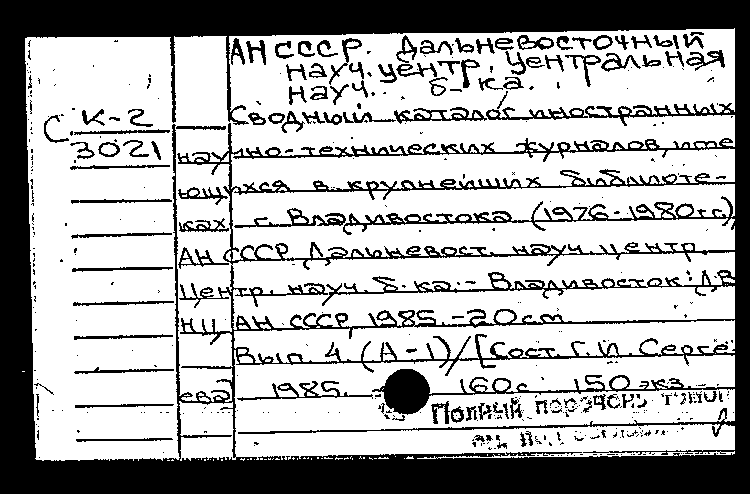 АН СССР. Дальневосточный
науч. центр. Центральная
науч. б-ка.
С К-2
3021
Сводный каталог иностранных
научно-технических журналов, име
ющихся в крупнейших библиоте-
ках г. Владивостока (1976-1980гг)
АН СССР Дальневост. науч. центр.
Центр. науч. б-ка. - Владивосток: ДВ
НЦ АН СССР, 1985. - 20 cm
Вып. 4. (А-I) / [Сост. Г. И. Серге
ева] 1985. 160с 150 экз.
Полный перечень